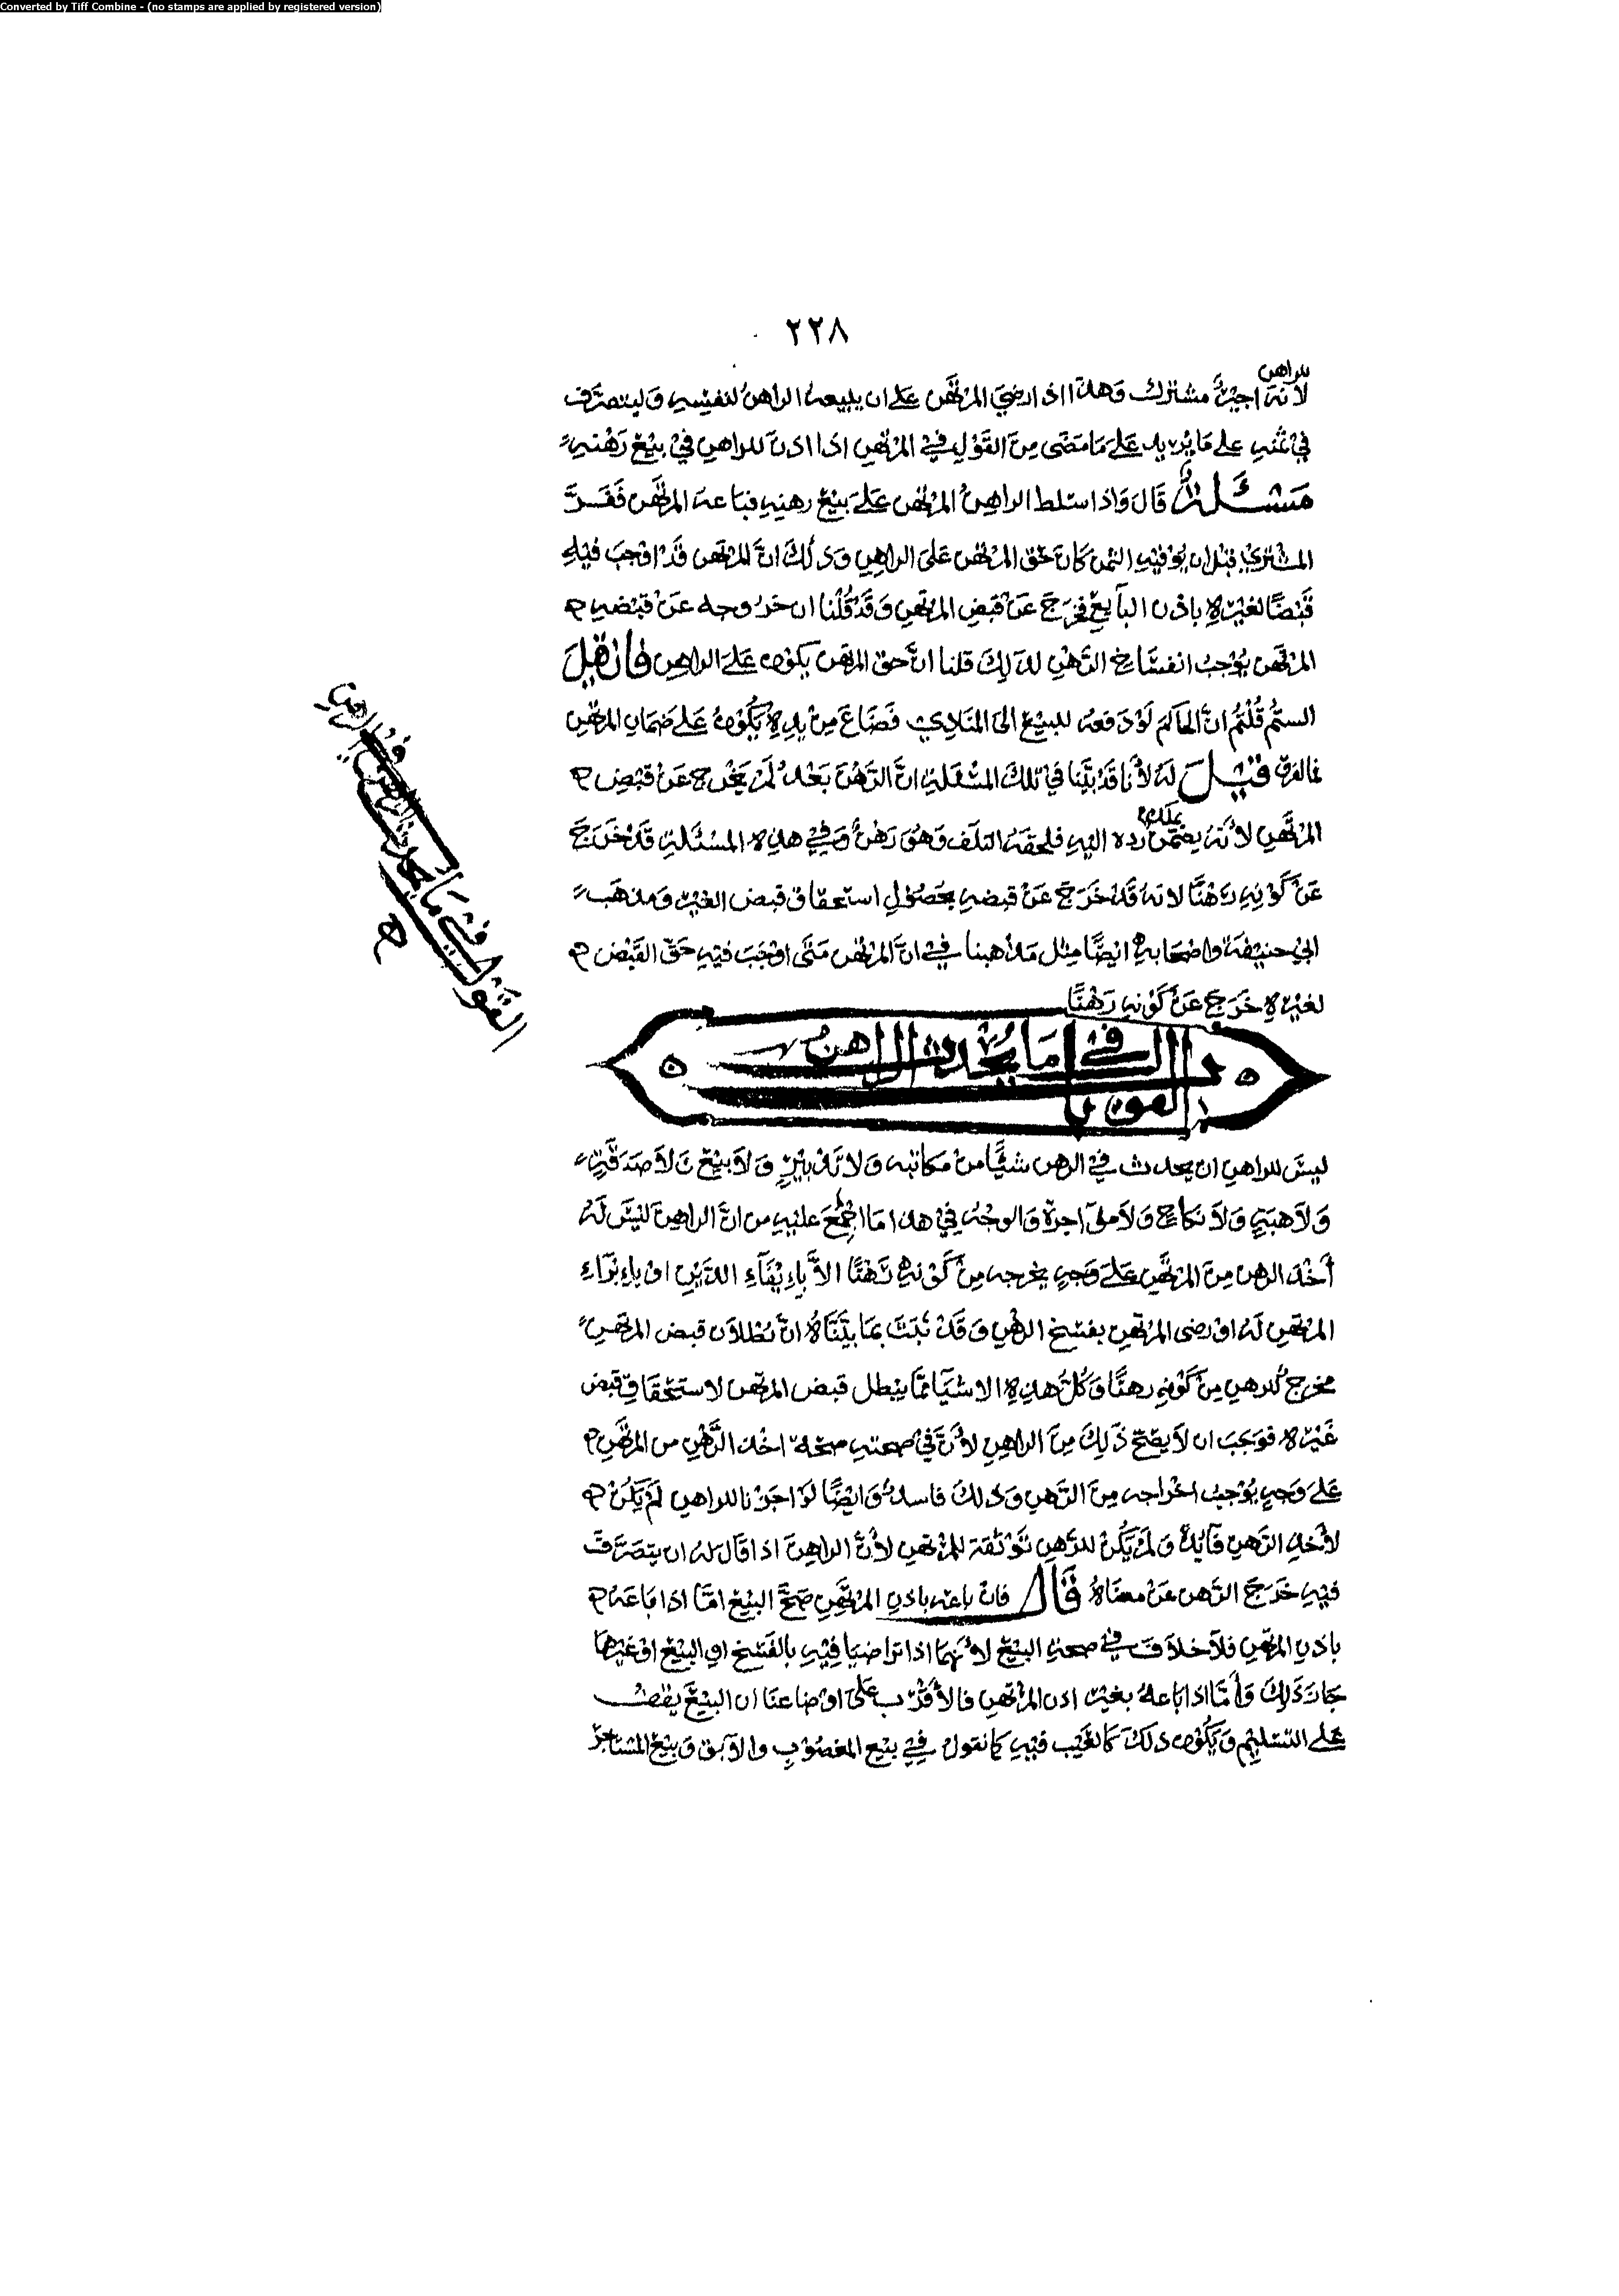 Converted by Tiff Combine - (no stamps are applied by registered version)
٢٢٨
للراهن
لانه اجيرٌ مشترك وَهذا اذا رضيَ المرتَهن عَلى ان يبيعه الراهنُ لنفسِه وَليتصرَّف
في ثمنه على مَا يُريد عَلى مَا مَضى مِنَ القَوْلِ فِي المرتهِنِ اذا اذنَ للراهنِ فيْ بيْع رَهْنهِ
مَسْئَلة قَالَ وَاذا سَلط الراهنُ المرتهن عَلىَ بَيْع رهنِه فبَاعهُ المرتَهن فَفَرَّ
المشتريْ قبْل ان يُوْفيهِ الثمن كانَ حَق المرتهن عَلى الراهِنِ وَذلكَ انَّ المرتهن قَدْ اوْجَبَ فيْهِ
قَبْضًا لغيْرِه باذْن البآيعِ فخرَجَ عَنْ قبَضِ المرتهنِ وَقَدْ قُلْنا ان خرُوجه عَنْ قبَضهِ
المرتَهن يُوْجبُ انفسَاخ الرَّهْنِ لذلِكَ قلنا انَّ حق المرتهن يَكون عَلىَ الراهِنِ فَان قيْلَ
السْتُم قُلْتُمُ انَّ الحاكمَ لوْ دَفعهُ للبيْع الىَ المنَاديْ فَضَاعَ مِنْ يدِهِ يَكُوْنُ عَلىَ ضَمانِ المرتهنِ
فما الفرق قيْلَ لهُ لأَنا قَدْ بيَّنا في تلكَ المسْئَلةِ انَّ الرَّهْنَ بَعْدُ لَمْ يَخْرجْ عَنْ قبْضِ
المرْتَهِنِ لأَنهُ يضمن رده اليهِ فلحقهُ التلَف وَهُوَ رَهْنٌ وَفيْ هذِه المسْئَلةِ قَدْ خرَجَ
عَنْ كَوْنِهِ رَهْنًا لانهُ قَدْ خَرَجَ عَنْ قبضهِ بحصُوْلِ استحقاق قبض الغيْر وَمذهَب
ابيْ حنيْفةَ واصْحَابهِ ايضًا مِثل مَذْهبنا فيْ انَّ المرْتهن مَتىَ اوْجَبَ فيْهِ حَقّ القبْض
لغيْرِه خَرَجَ عَنْ كَوْنِهِ رَهْنًا
باب القول في مَا يُحدث الراهنُ
القَوْل فيْ مَا يحدث الراهن
ليسَ للراهنِ ان يحدث فيْ الرهن شيْئًا منْ مكاتبه وَلا تَدْبيْرٍ وَلاَ بيْع وَلاَ صَدَقةٍ
وَلاَ هبَةٍ وَلاَ نكاح وَلاَ اجرة وَالوجْهُ فيْ هذا مَا اجْمعَ عليْهِ من انَّ الراهِنَ ليْسَ لهُ
أخْذ الرهن مِنَ المرْتَهِنِ عَلىَ وَجهٍ يخرجه مِنْ كَوْنهِ رَهْنًا الاَّ بِايْفَآءِ الدَّيْنِ اوْ بإبْرَآءِ
المرْتهِنِ لهُ اوْ رضى المرْتهنِ بفسْخِ الرهْنِ وَقَدْ ثبَتَ بمَا بيَّنَّاهُ انَّ بُطْلاَن قبض المرتهن
مخرجٌ للرهنِ مِنْ كَوْنهِ رهنًا وَكُلّ هذِهِ الاشيَآ ممَّا يبْطل قبض المرتهن لاستحْقاقِ قبض
غَيْره فوَجَبَ ان لاَ يصَحّ ذَلِكَ مِنَ الراهِنِ لأَنَّ فيْ صحتهِ صحّة اخْذ الرَّهْنِ من المرْتَهِنِ
عَلىَ وَجهٍ يُوْجبُ اخراجه مِنَ الرَّهنِ وَذلكَ فاسدٌ وَايْضًا لوْ اجزْنا للراهن لَمْ يَكُنْ
لأَخذِ الرَّهنِ فآيدةٌ وَلمْ يَكُنْ للرَّهنِ تَوْثقَة للمرْتهنِ لأَنَّ الراهِنَ اذا قَالَ لهُ ان يتصَرَّفَ
فيْهِ خَرَجَ الرَّهن عَنْ معنَاهُ قَالَ فانْ باعَه باذنِ المرْتهِنِ صَحَّ البيْع امَّا اذا بَاعَهُ
باذنِ المرْتهنِ فلاَ خلاَفَ فيْ صحةِ البيْع لأَنهُمَا اذا ترَاضيَا فِيْهِ بالفَسْخ اوِ البيْع اوْ غيْرهمَا
جَازَ ذَلِكَ وَأَمَّا اذا بَاعهُ بغيْر اذن المرْتهِنِ فالأَقْرَب عَلىَ اوْضاعنَا ان البيْعَ يقف
عَلىَ التسْليْمِ وَيَكُوْن ذلكَ كَالعَيْب فيْهِ كَما نقولُ فيْ بيْع المغصُوْبِ والآبق وَبيْع المستأجَر